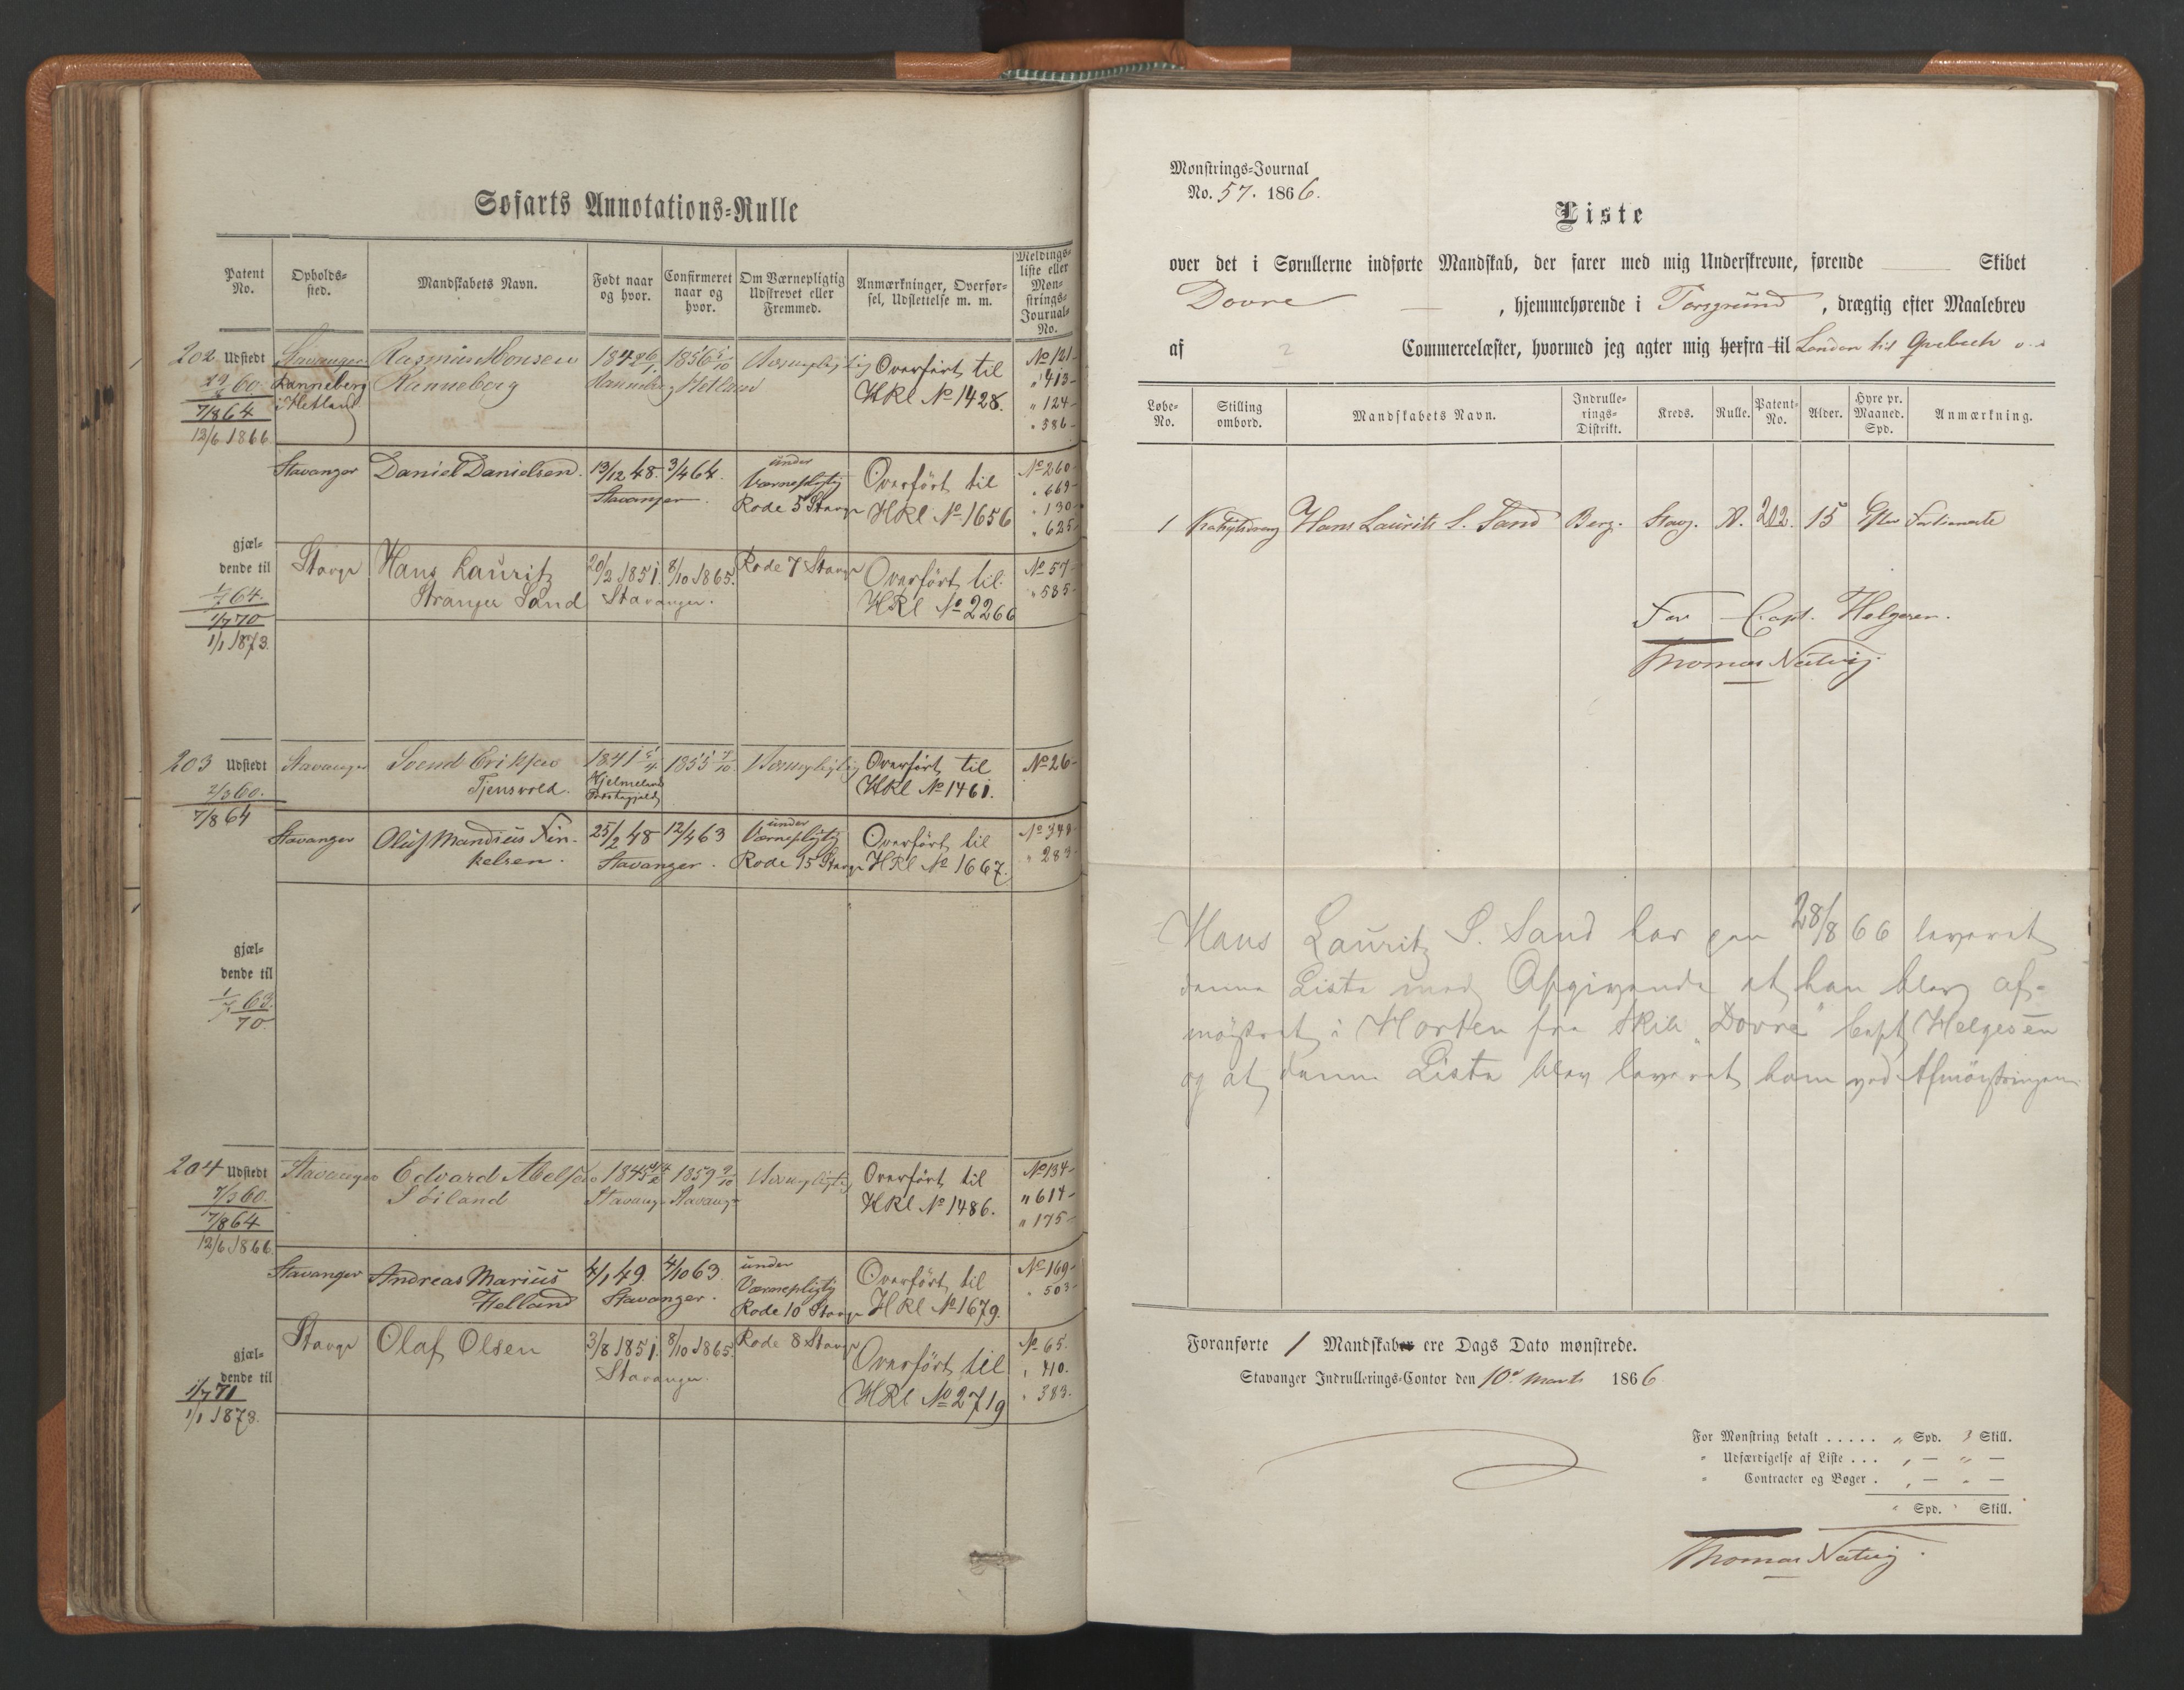 Søfarts Annotations-Rulle
Patent No.
Opholds-sted.
Mandskabets Navn.
Født naar og hvor.
Confirmeret naar og hvor.
Om Værnepligtig Udskrevet eller Fremmed.
Anmærkninger, Overfør-sel, Udslettelse m. m.
Meldings-liste eller Møn-strings-Journal-No.
202 Udstedt Stavanger Rasmus Monsen 1842 26/1 1856 5/10 Værnepligtig Overført til No 121
60 Ranneberg Ranneberg Hetland HRl No 1428. " 413
7/8 64 i Hetland " 124
12/6 1866 " 386
Stavanger Daniel Danielsen. 13/12 48. 3/4 64. under Overført til No 260
Stavanger. Værnepligtig HRl No 1656 " 669
Rode 5 Stavgr " 130
" 625
gjæl-
dende til Stavgr Hans Lauritz 20/2 1851. 8/10 1865. Rode 7 Stavgr Overført til No 57
1/7 64. Stranger Sand Stavanger. HRl No 2266 " 585
1/7 70
1/1 1873.
203 Udstedt Stavanger Svend Eriksen 1841 5/4 1855 7/10. Værnepligtig Overført til No 26
2/3 60. Tjensvold. Hjelmeland HRl No 1461.
7/8 64 Præstegjeld
Stavanger Oluf Mandius Kin- 25/2 48 12/4 63 under Overført til No 348
kelsen. Stavanger. Værnepligtig HRl No 1667. " 283
Rode 15 Stavgr
gjæl-
dende til
1/7 63.
70
204 Udstedt Stavanger Edvard Abelsen 1845 1859 9/10 Værnepligtig Overført til No 134
7/3 60. Söiland Stavangr Stavangr HRl No 1486. " 614
7/8 64 " 175
12/6 1866.
Stavanger Andreas Marius 4/1 49 4/10 63. under Overført til No 169
Helland Stavanger. Værnepligtig HRl No 1679. " 503
Rode 10 Stavgr
Stavgr Olaf Olsen 3/8 1851. 8/10 1865. Rode 8 Stavgr Overført til No 65.
gjæl- Stavanger. HRl No 2719 " 410.
dende til " 383.
1/7 71
1/1 1873.
Mønstrings-Journal
No. 57. 1866.
Liste
over det i Sørullerne indførte Mandskab, der farer med mig Underskrevne, førende Skibet
Dovre , hjemmehørende i Porsgrund , drægtig efter Maalebrev
af 2 Commercelæster, hvormed jeg agter mig herfra til London til Qvebech
Løbe-No.
Stilling ombord.
Mandskabets Navn.
Indrulle-rings-Distrikt.
Kreds.
Rulle.
Patent-No.
Alder.
Hyre pr. Maaned. Spd.
Anmærkning.
1 Kahytsdreng Hans Laurits S. Sand Berg. Stavg. A. 202. 15 Efter Fortieneste
For Capt. Helgesen.
Thomas Natvig.
Hans Lauritz S. Sand har paa 28/8 66 leveret
denne Liste med Opgivende at han blev af-
mönstret i Horten fra Skib "Dovre" Capt Helgesen
og at denne Liste blev leveret ham ved Afmönstringen
Foranførte 1 Mandskaber ere Dags Dato mønstrede.
Stavanger Indrullerings-Contor den 10de Marts 1866
For Mønstring betalt ..... " Spd. 3 Skill.
" Udfærdigelse af Liste ... " — " —
" Contracter og Bøger . " — " —
Spd. Skill.
Thomas Natvig.